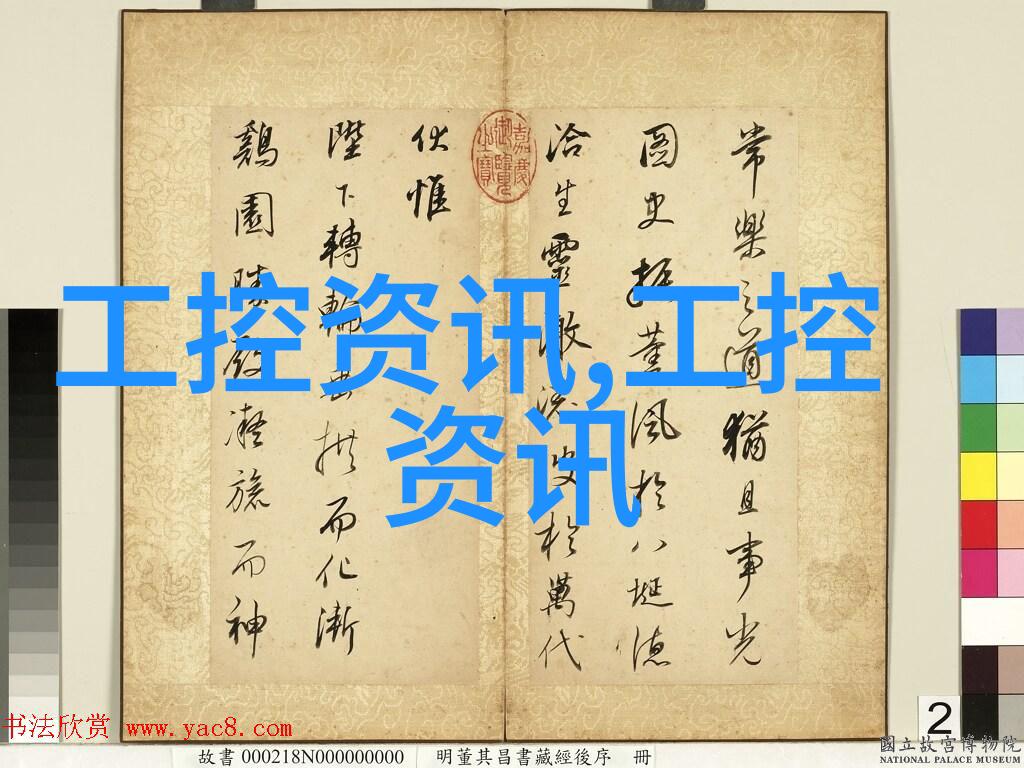 常樂之道猶且事光
圖史振薰風於八埏德
洽生靈於萬代
伏惟
陛下轉輪垂拱而化漸
鷄園勝殿凝旒而神
嘉慶
御覽
之寶
工控资讯,工控
资讯
书法欣赏 www.yac8.com
故書 000218N000000000 明董其昌書藏經後序 冊
2
國立故宮博物院
NATIONAL PALACE MUSEUM